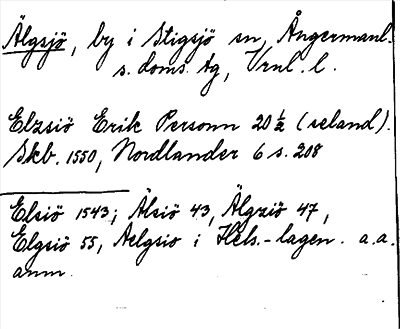 Älgsjö, by i Stigsjö sn, Ångermanl.
s. doms. tg, Vrnl. l.
Elzsiö Erik Personn 20 ½ (seland).
Skb. 1550, Nordlander 6 s. 208
Elsiö 1543; Älsiö 43, Älgziö 47,
Elgsiö 55, Aelgsio i Hels.-lagen. a.a.
anm.